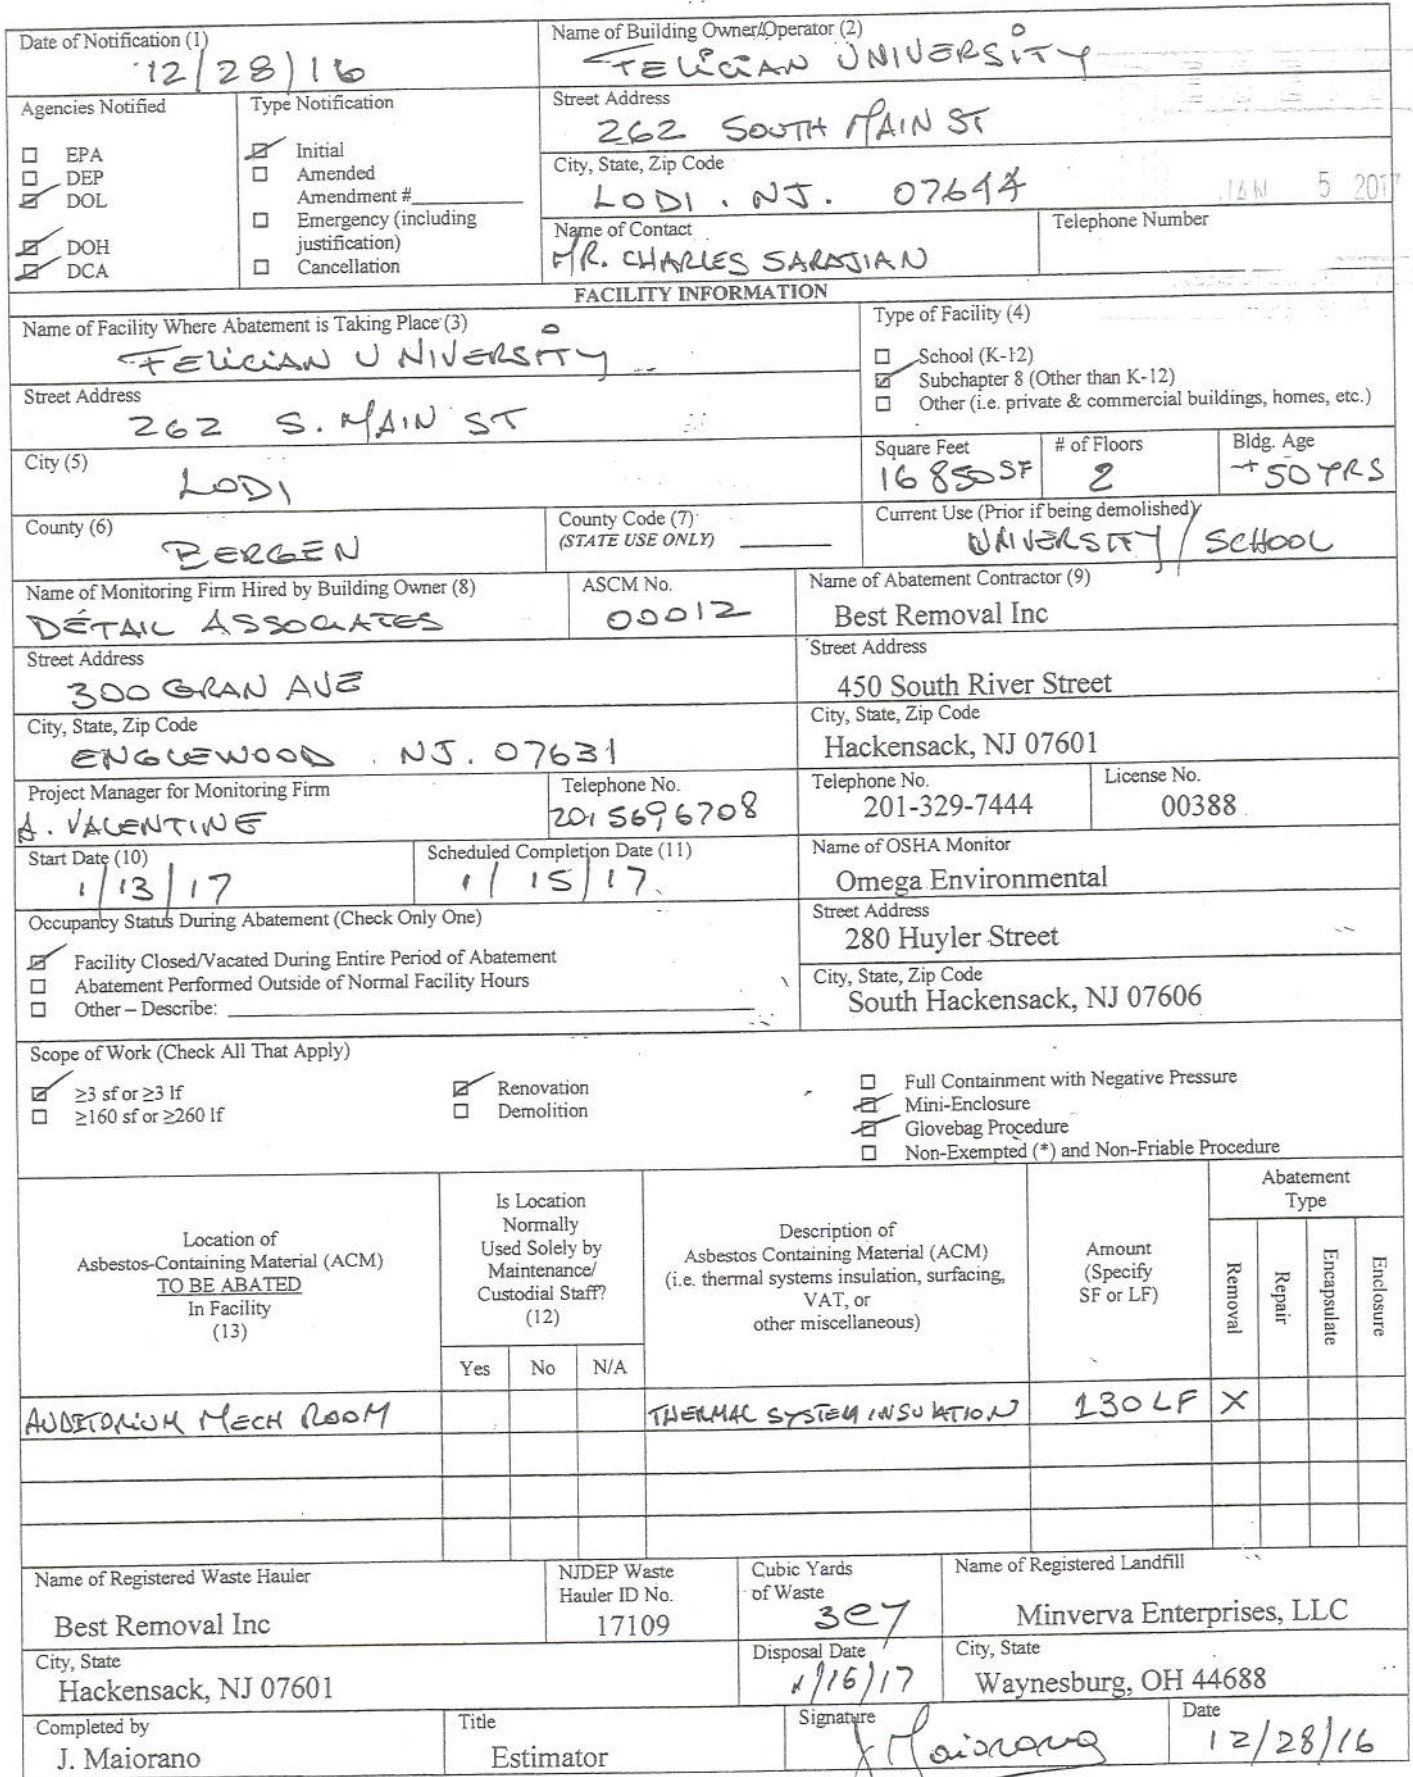 Date of Notification (1)
12/28/16
Name of Building Owner/Operator (2)
FELICIAN UNIVERSITY
Agencies Notified
☐ EPA
☐ DEP
☑ DOL
☑ DOH
☑ DCA
Type Notification
☑ Initial
☐ Amended
Amendment #
☐ Emergency (including
justification)
☐ Cancellation
Street Address
262 SOUTH MAIN ST
City, State, Zip Code
LODI . NJ. 07644
JAN 5 2017
Name of Contact
MR. CHARLES SARAJIAN
Telephone Number
FACILITY INFORMATION
Name of Facility Where Abatement is Taking Place (3)
FELICIAN UNIVERSITY
Type of Facility (4)
☐ School (K-12)
☑ Subchapter 8 (Other than K-12)
☐ Other (i.e. private & commercial buildings, homes, etc.)
Street Address
262 S. MAIN ST
City (5)
LODI
Square Feet
16850SF
# of Floors
2
Bldg. Age
+50YRS
County (6)
BERGEN
County Code (7)
(STATE USE ONLY)
Current Use (Prior if being demolished)
UNIVERSITY / SCHOOL
Name of Monitoring Firm Hired by Building Owner (8)
DETAIL ASSOCIATES
ASCM No.
00012
Name of Abatement Contractor (9)
Best Removal Inc
Street Address
300 GRAN AVE
Street Address
450 South River Street
City, State, Zip Code
ENGLEWOOD . NJ. 07631
City, State, Zip Code
Hackensack, NJ 07601
Project Manager for Monitoring Firm
A. VALENTINE
Telephone No.
201 5696708
Telephone No.
201-329-7444
License No.
00388
Start Date (10)
1/13/17
Scheduled Completion Date (11)
1/15/17.
Name of OSHA Monitor
Omega Environmental
Occupancy Status During Abatement (Check Only One)
☑ Facility Closed/Vacated During Entire Period of Abatement
☐ Abatement Performed Outside of Normal Facility Hours
☐ Other – Describe:
Street Address
280 Huyler Street
City, State, Zip Code
South Hackensack, NJ 07606
Scope of Work (Check All That Apply)
☑ ≥3 sf or ≥3 lf
☐ ≥160 sf or ≥260 lf
☑ Renovation
☐ Demolition
☐ Full Containment with Negative Pressure
☑ Mini-Enclosure
☑ Glovebag Procedure
☐ Non-Exempted (*) and Non-Friable Procedure
Location of
Asbestos-Containing Material (ACM)
TO BE ABATED
In Facility
(13)
Is Location
Normally
Used Solely by
Maintenance/
Custodial Staff?
(12)
Yes No N/A
Description of
Asbestos Containing Material (ACM)
(i.e. thermal systems insulation, surfacing,
VAT, or
other miscellaneous)
Amount
(Specify
SF or LF)
Abatement
Type
Removal
Repair
Encapsulate
Enclosure
AUDITORIUM MECH ROOM THERMAL SYSTEM INSULATION 130 LF X
Name of Registered Waste Hauler
Best Removal Inc
NJDEP Waste
Hauler ID No.
17109
Cubic Yards
of Waste
3CY
Name of Registered Landfill
Minverva Enterprises, LLC
City, State
Hackensack, NJ 07601
Disposal Date
1/16/17
City, State
Waynesburg, OH 44688
Completed by
J. Maiorano
Title
Estimator
Signature
J Maiorano
Date
12/28/16